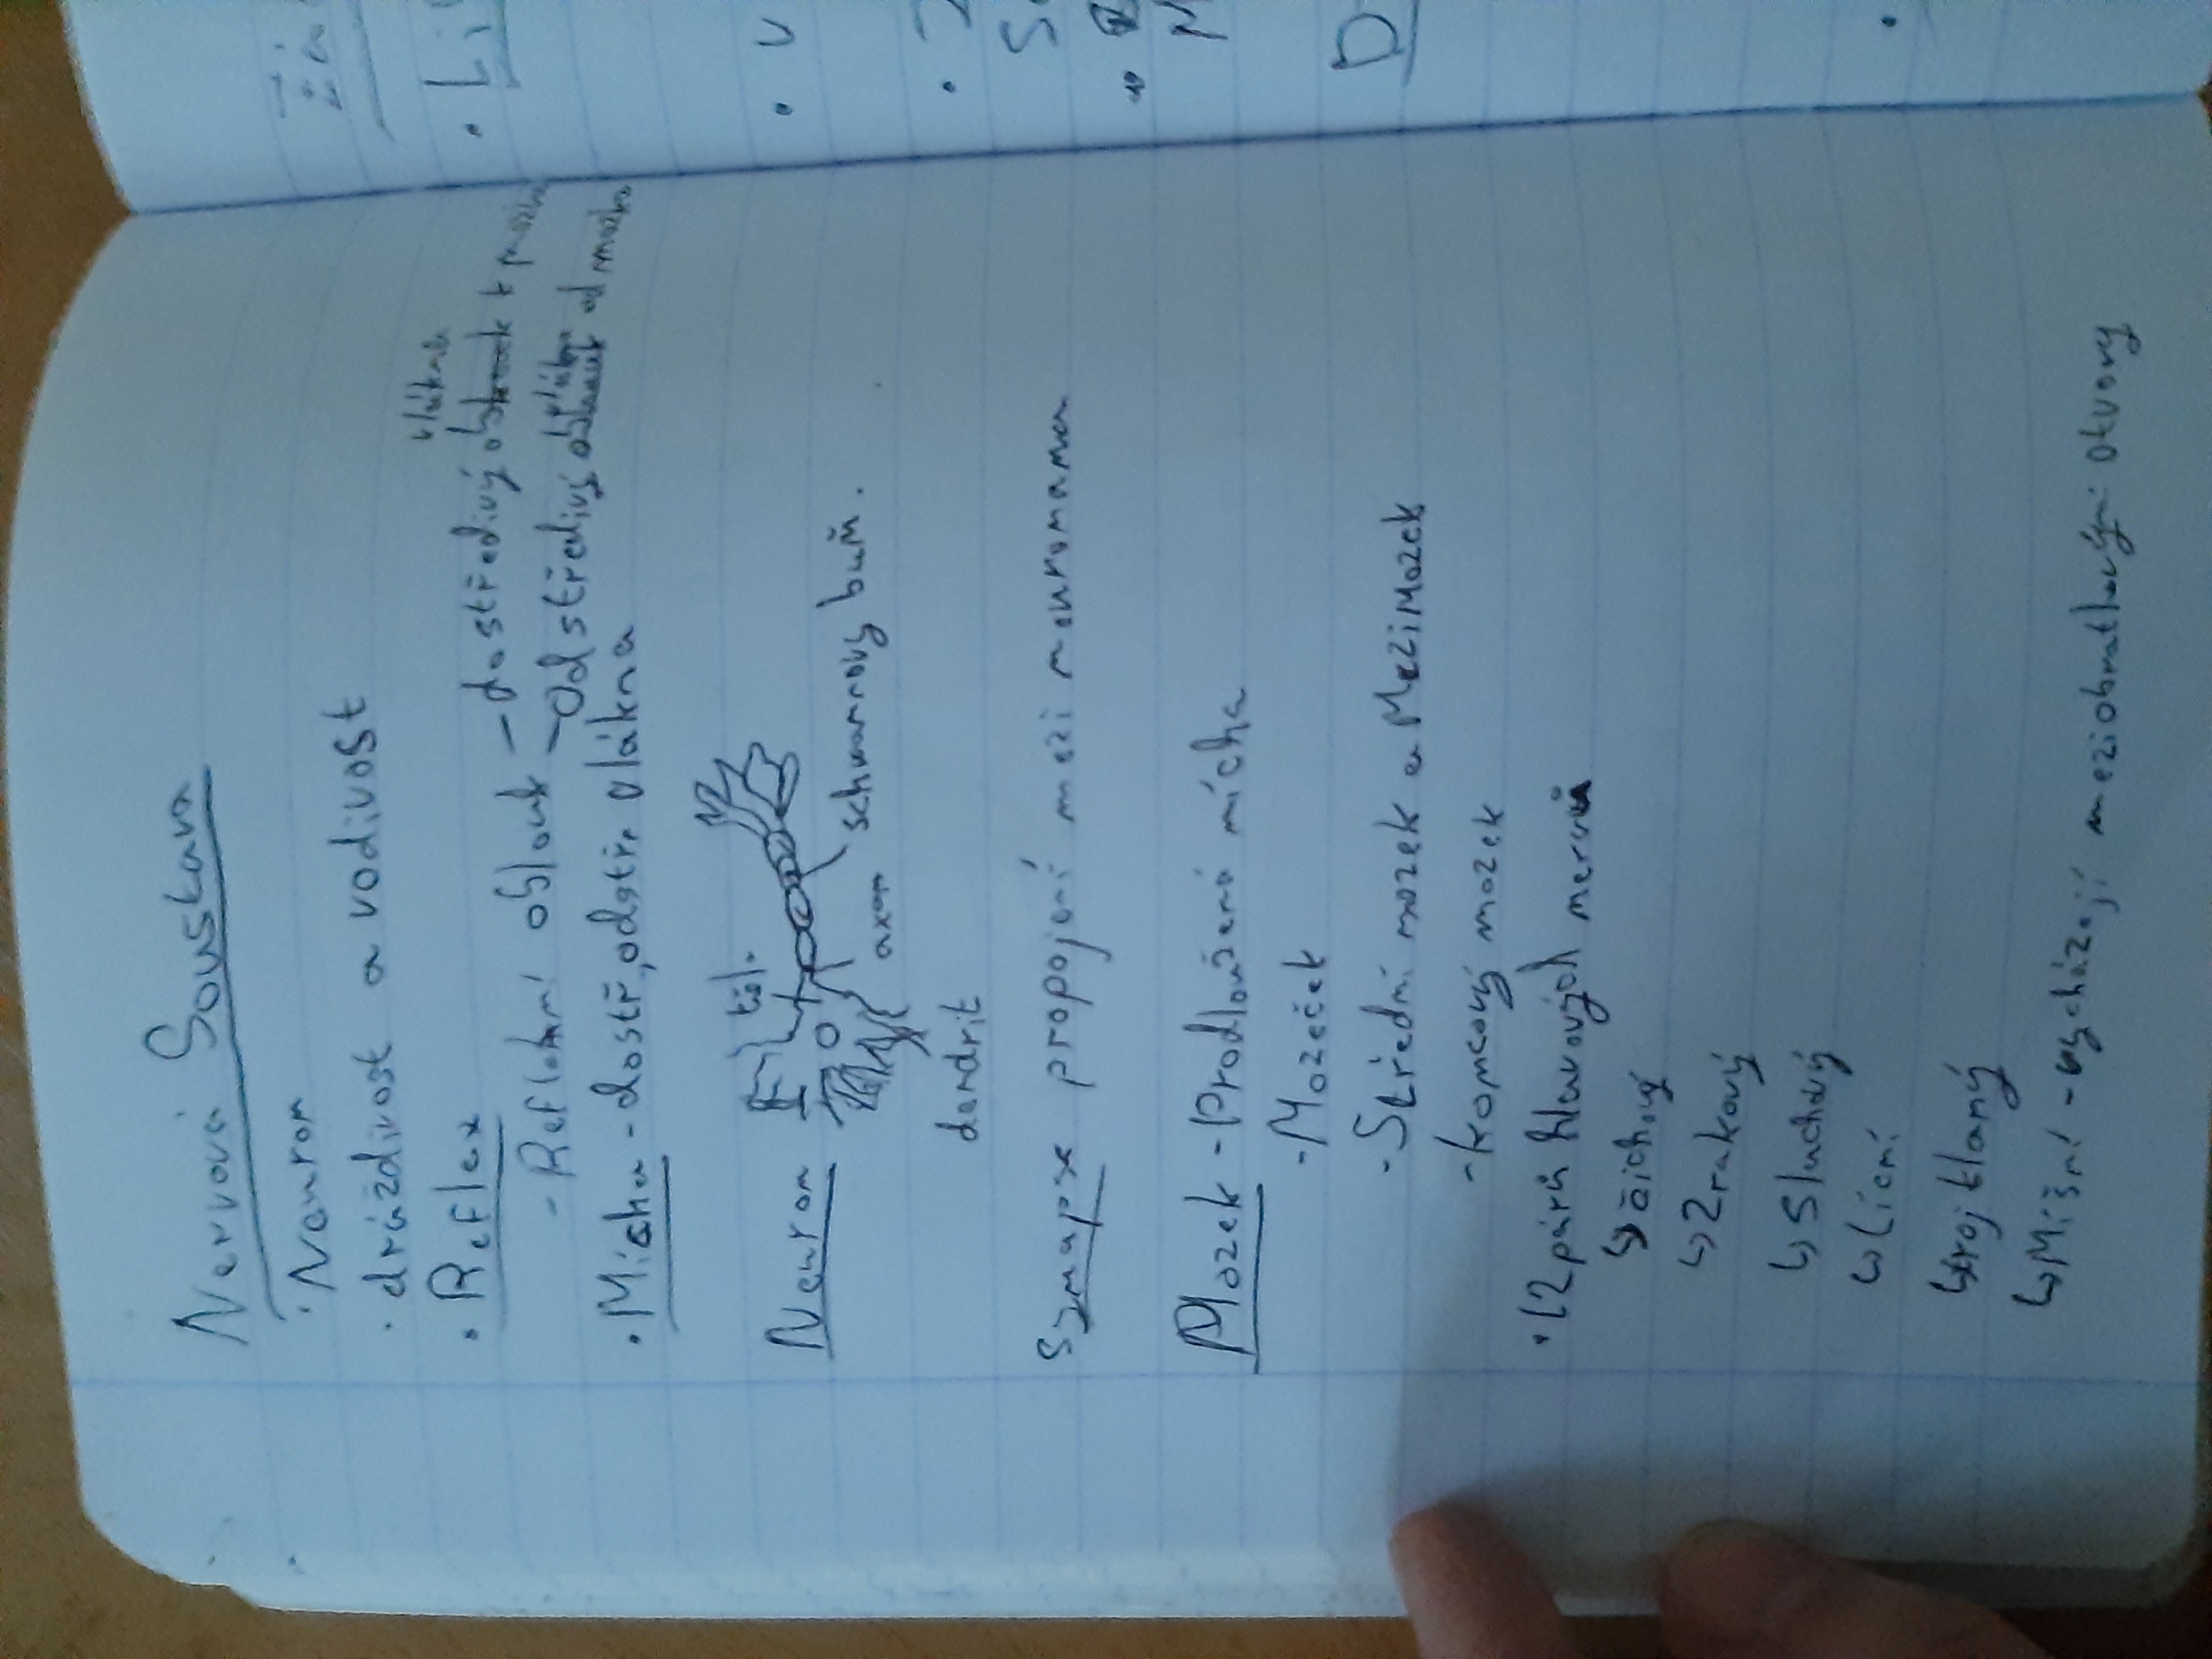 Nervová Soustava
• Neuron
• dráždivost a vodivost
• Reflex
vlákna
- Reflexní oblouk - dostředivý oblouk k mozku
vlákna
- Odstředivý oblouk od mozku
• Mícha - dostř., odstř. vlákna
Neuron
těl.
axon
schwannovy buň.
dendrit
Synapse propojení mezi neuronama
Mozek - Prodloužená mícha
- Mozeček
- Střední mozek a Mezimozek
- koncový mozek
• 12 párů hlavových nervů
↳ čichový
↳ Zrakový
↳ Sluchový
↳ lícní
↳ trojklaný
↳ Míšní - vycházejí meziobratlovými otvory